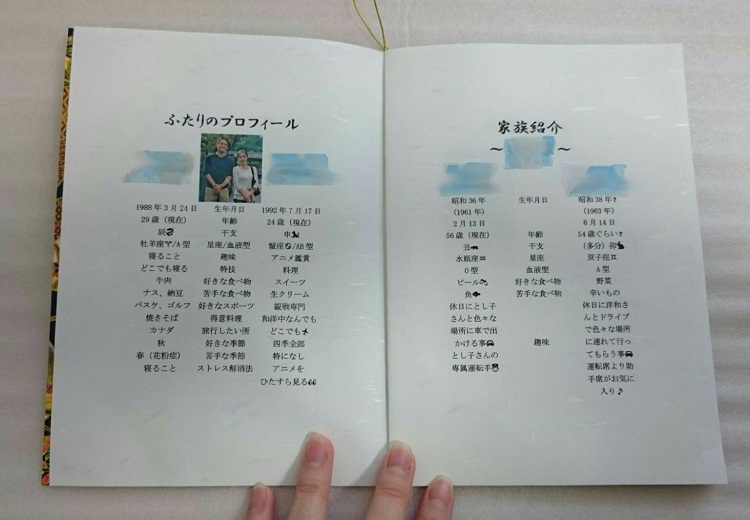 ふたりのプロフィール
1988年3月24日 生年月日 1992年7月17日
29歳（現在） 年齢 24歳（現在）
辰🐉 干支 申🐒
牡羊座♈/A型 星座/血液型 蟹座♋/AB型
寝ること 趣味 アニメ鑑賞
どこでも寝る 特技 料理
牛肉 好きな食べ物 スイーツ
ナス、納豆 苦手な食べ物 生クリーム
バスケ、ゴルフ 好きなスポーツ 観戦専門
焼きそば 得意料理 和洋中なんでも
カナダ 旅行したい所 どこでも✈
秋 好きな季節 四季全部
春（花粉症） 苦手な季節 特になし
寝ること ストレス解消法 アニメを
ひたすら見る👀
家族紹介
～ ～
昭和36年 生年月日 昭和38年?
(1961年) (1963年)
2月13日 6月14日
56歳（現在） 年齢 54歳ぐらい?
丑🐃 干支 （多分）卯🐇
水瓶座♒ 星座 双子座♊
O型 血液型 A型
ビール🍻 好きな食べ物 野菜
魚🐟 苦手な食べ物 辛いもの
休日にとし子 休日に洋和さ
さんと色々な んとドライブ
場所に車で出 で色々な場所
かける事🚘 趣味 に連れて行っ
とし子さんの てもらう事🚘
専属運転手 運転席より助
手席がお気に
入り♪